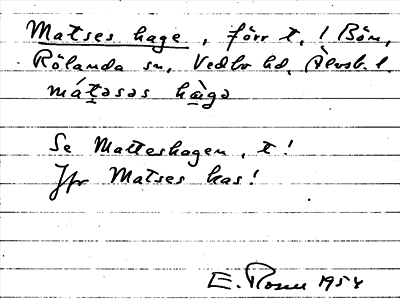 Matses hage, förr t. ! Bön,
Rölanda sn, Vedbo hd, Älvsb. l.
mátəsəs hàgə
Se Matteshagen, t!
Jfr Matses has!
E. Rosen 1954